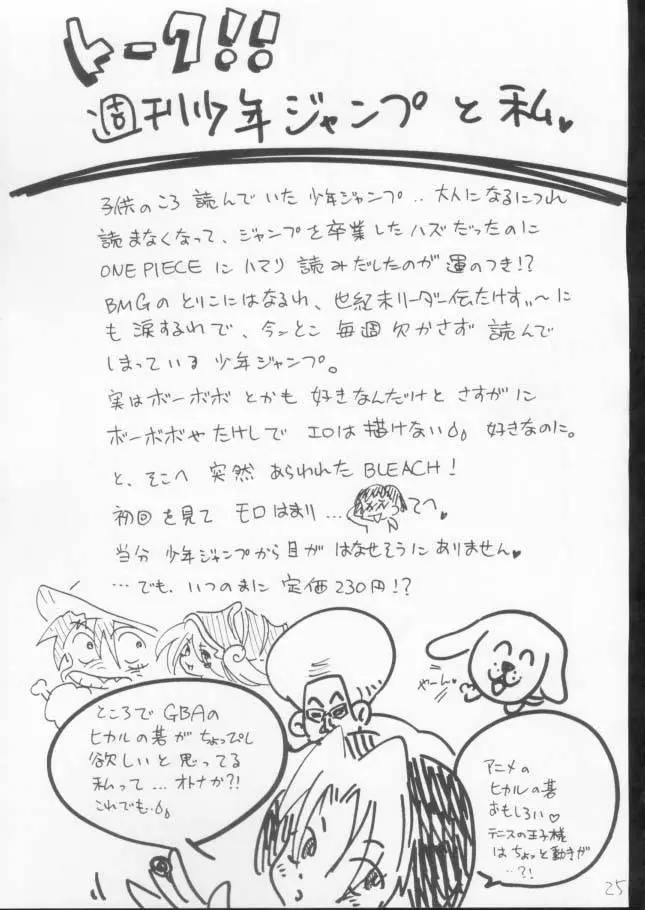 トーク!!
週刊少年ジャンプと私♥
子供のころ 読んでいた 少年ジャンプ‥大人になるにつれ
読まなくなって、ジャンプを卒業したハズだったのに
ONE PIECE に ハマり 読みだしたのが 運のつき!?
BMGの とりこにはなるわ、世紀末リーダー伝たけすぃ〜に
も 涙するわで、今んとこ 毎週 欠かさず 読んで
しまっている 少年ジャンプ。
実はボーボボ とかも 好きなんだけど さすがに
ボーボボや たけしで エロは描けない 好きなのに。
と、そこへ 突然 あらわれた BLEACH!
初回を見て モロはまり… てへ♥
当分 少年ジャンプから目が はなせそうにありません♥
…でも、いつのまに 定価230円!?
やーん
ところで GBAの
ヒカルの碁が ちょっぴし
欲しいと思ってる
私って…オトナか?!
これでも‥
アニメの
ヒカルの碁
おもしろい♡
テニスの王子様
はちょっと動きが
…?!
25